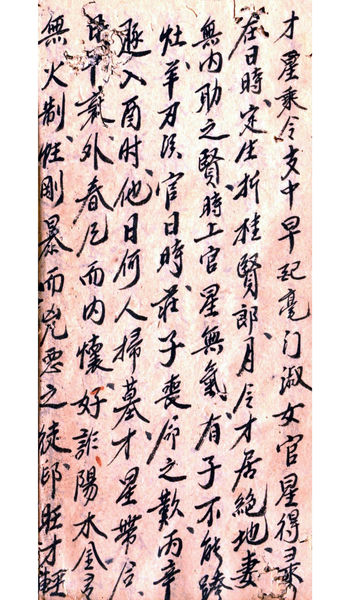 才星乘令支中早配毫门淑女官星得录
在日時定生折桂賢郎月令才居絶地妻
無内助之賢時上官星無氣有子不能跨
灶羊刃官日時莊子喪命之歎丙辛
入酉时他日何人掃墓才星帶合
干衰外春而内懷奸詐陽木金多
無火制性剛暴而兇惡之徒印旺才輕